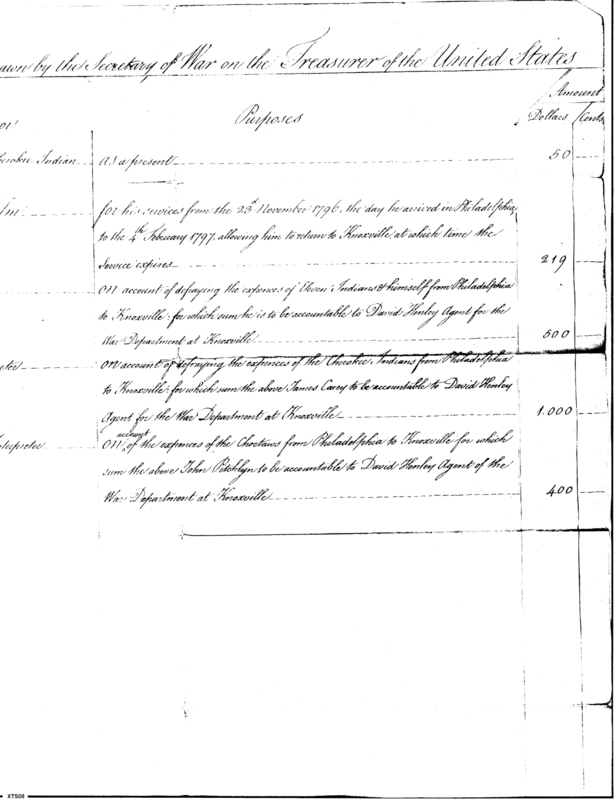 by the Secretary of War on the Treasurer of the United States
Amount
Purposes
Dollars Cents
Indian as a present 50
for his services from the 23d November 1796, the day he arrived in Philadelphia,
to the 4th February 1797, allowing him to return to Knoxville, at which time the
Service expires 219
on account of defraying the expences of Eleven Indians & himself from Philadelphia
to Knoxville: for which sum he is to be accountable to David Henley Agent for the
War Department at Knoxville 500
on account of defraying the expences of the Cherokee Indians from Philadelphia
to Knoxville: for which sum the above James Carey to be accountable to David Henley
Agent for the War Department at Knoxville 1.000
on accot of the expences of the Choctaws from Philadelphia to Knoxville for which
sum the above John Pitchlyn to be accountable to David Henley Agent of the
War Department at Knoxville 400
XTS08